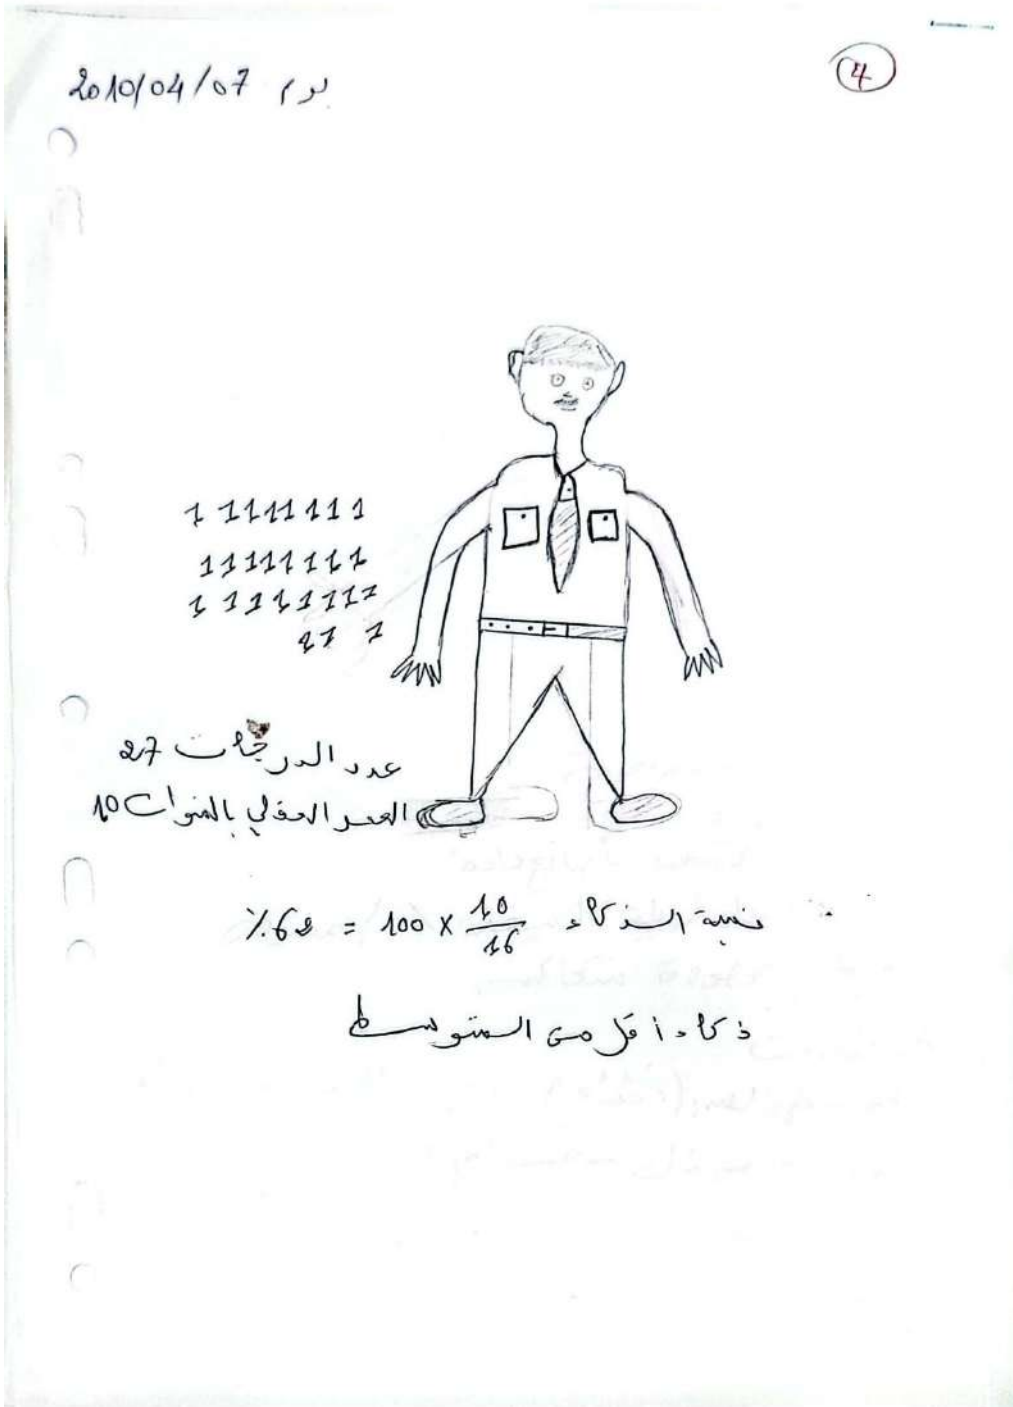 4
يوم 2010/04/07
1 1111111
11111111
1 1111111
11 1
عدد الدرجات 27
العمر العقلي بالسنوات 10
نسبة الذكاء 10/16 × 100 = 62%
ذكاء أقل من المتوسط